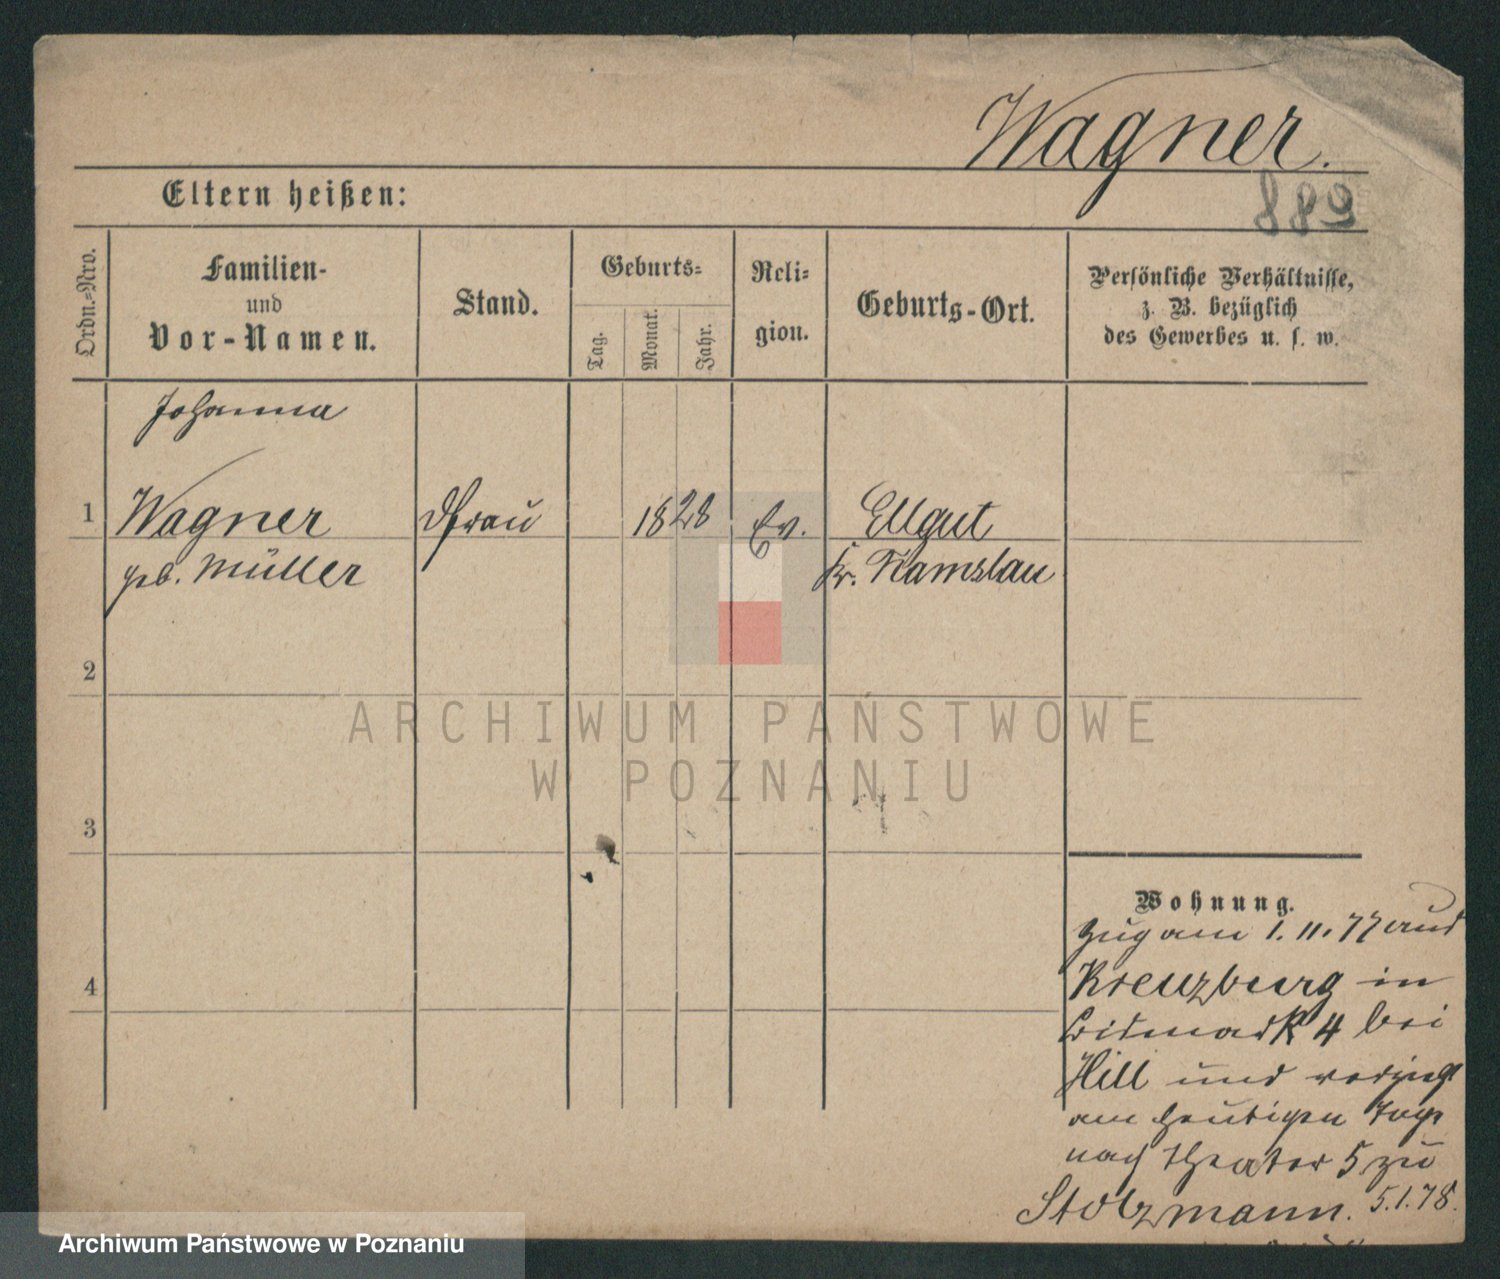 Wagner.
889
Eltern heißen:
Ordn.=Nro.
Familien-
und
Vor-Namen.
Stand.
Geburts=
Tag.
Monat.
Jahr.
Reli=
gion.
Geburts-Ort.
Persönliche Verhältnisse,
z. B. bezüglich
des Gewerbes u. s. w.
Johanna
1 Wagner
geb. Müller
1828
Ev.
Ellgut
Kr. Namslau
2
ARCHIWUM PAŃSTWOWE
W POZNANIU
3
4
Wohnung.
Zug am 1.11.77 aus
Kreuzburg in
4 bei
Hill und verzieht
am heutigen Tage
nach Theater 5 zu
Stolzmann. 5.1.78.
Archiwum Państwowe w Poznaniu